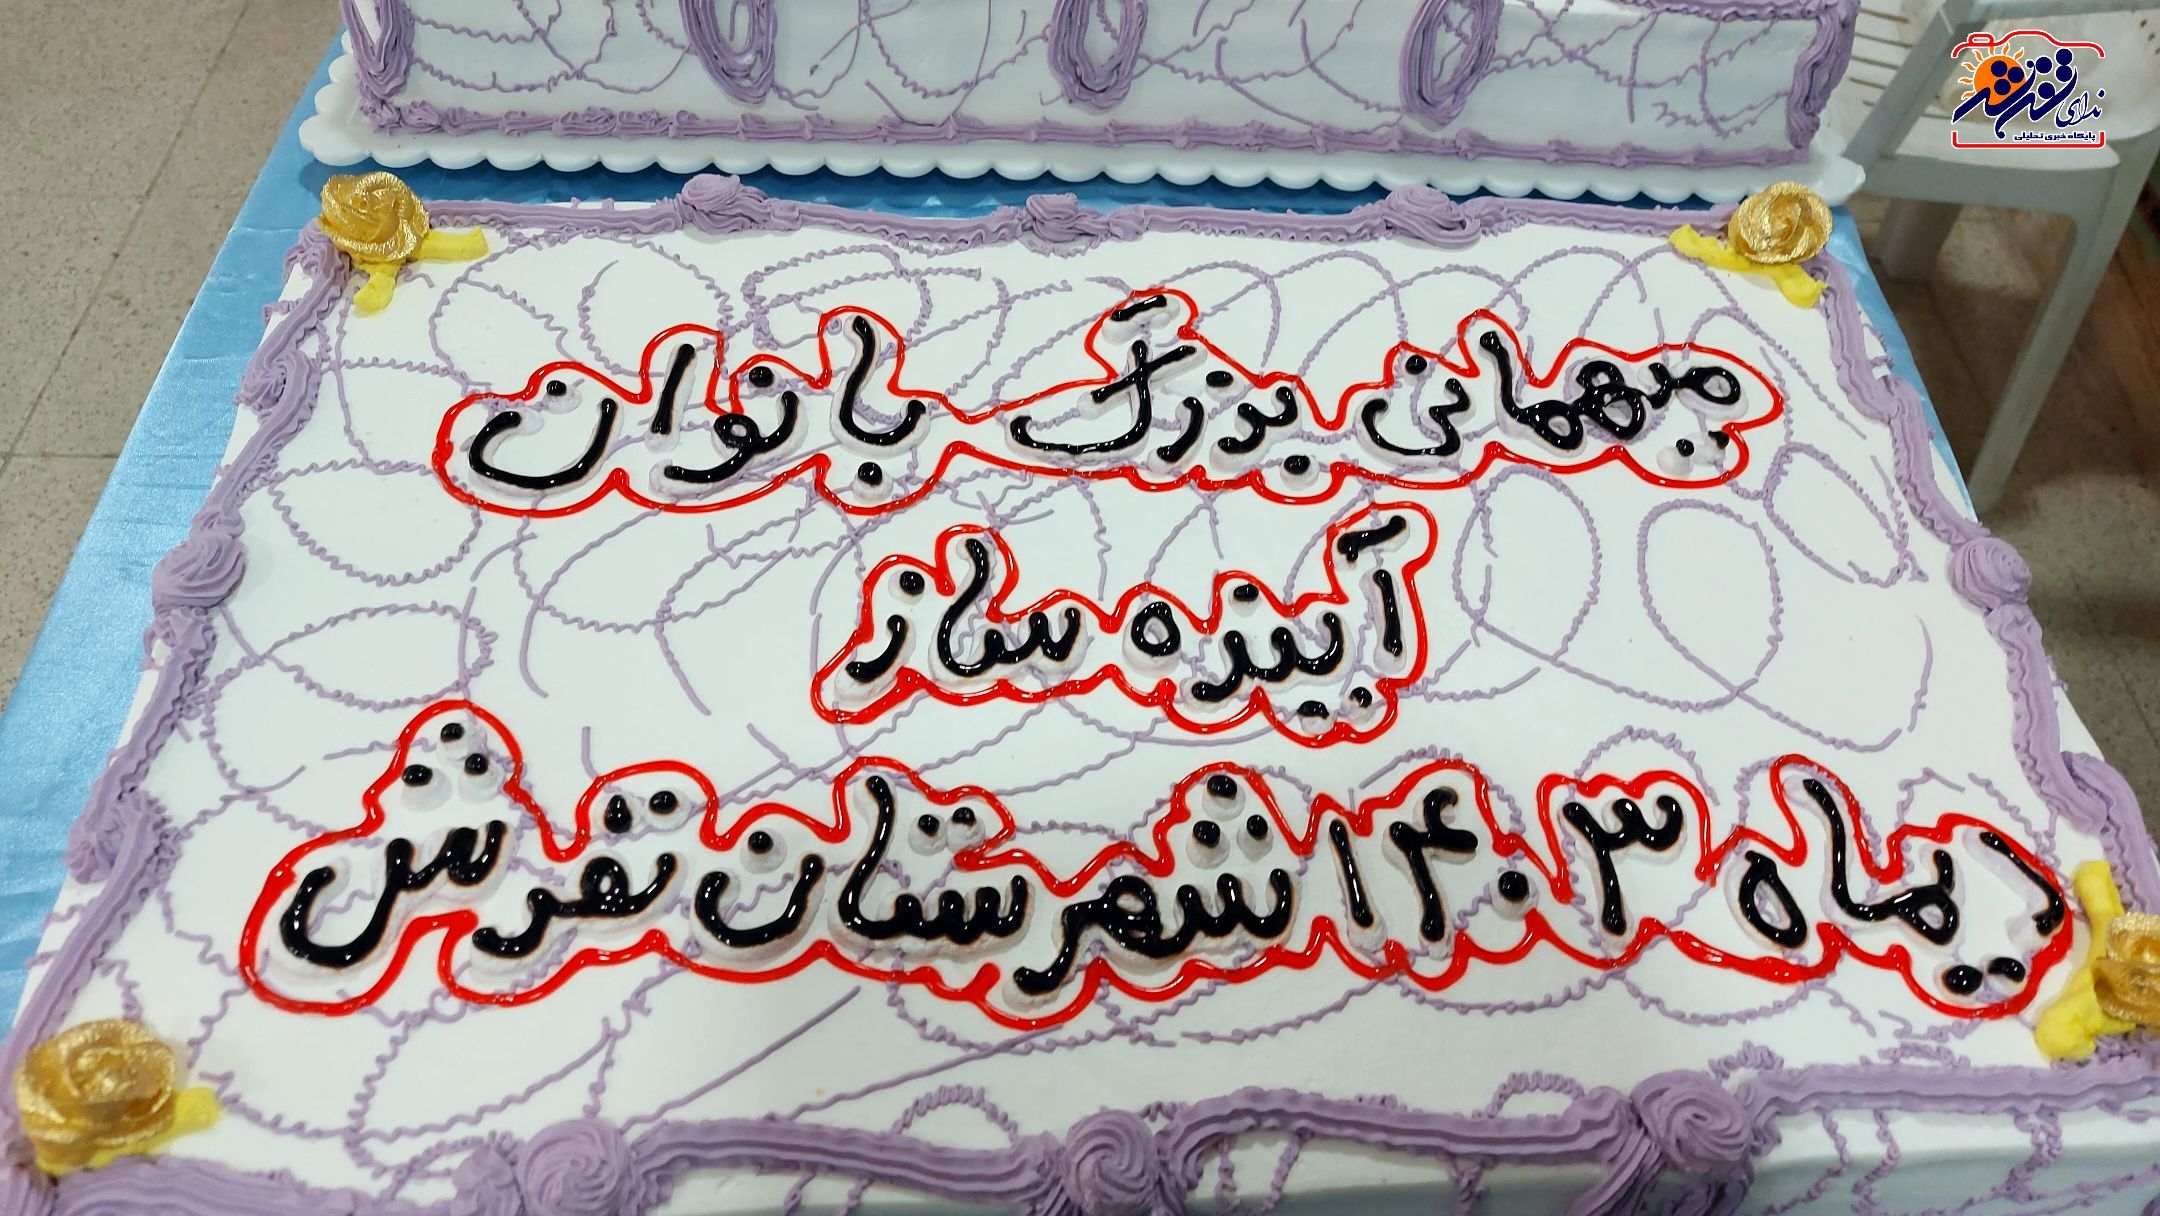 ندای تفرش
پایگاه خبری تحلیلی
میهمانی بزرگ بانوان
آینده ساز
دیماه ۱۴۰۳ شهرستان تفرش